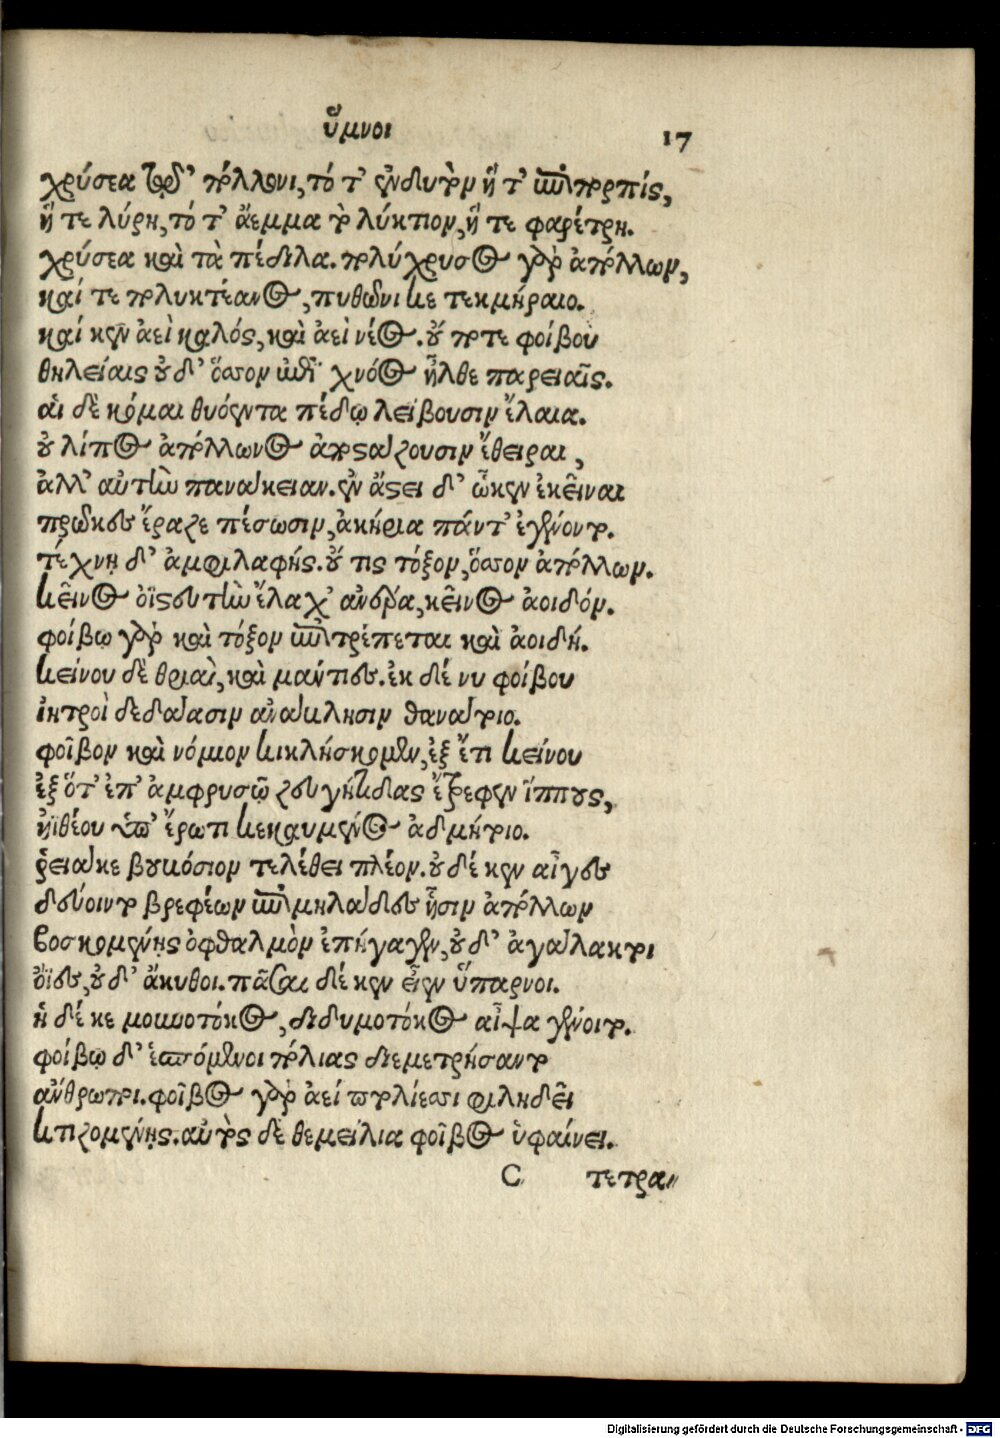 ὕμνοι 17
χρύσεα τῷδ' πόλλωνι, τό τ' ἐνδυτὸν ἥ τ' ἐπιπορπίς,
ἥ τε λύρη, τό τ' ἄεμμα τὸ λύκτιον, ἥ τε φαρέτρη.
χρύσεα καὶ τὰ πέδιλα. πολύχρυσος γὰρ ἀπόλλων,
καί τε πολυκτέανος, πυθῶνι κε τεκμήραιο.
καί κεν ἀεὶ καλός, καὶ ἀεὶ νέος. οὔ ποτε φοίβου
θηλείαις οὐδ' ὅσσον ἐπὶ χνόος ἦλθε παρειαῖς.
αἱ δὲ κόμαι θυόεντα πέδῳ λείβουσιν ἔλαια.
οὐ λίπος ἀπόλλωνος ἀποστάζουσιν ἔθειραι,
ἀλλ' αὐτὴν πανάκειαν. ἐν ἄστει δ' ὧκεν ἐκεῖναι
πρῶκες ἔραζε πέσωσιν, ἀκήρια πάντ' ἐγένοντο.
τέχνῃ δ' ἀμφιλαφής. οὔ τις τόξον, ὅσσον ἀπόλλων.
κεῖνος ὀϊστευτὴν ἔλαχ' ἀνδρα, κεῖνος ἀοιδόν.
φοίβῳ γὰρ καὶ τόξον ἐπιτρέπεται καὶ ἀοιδή.
κείνου δὲ θριαὶ, καὶ μάντιες. ἐκ δέ νυ φοίβου
ἰητροὶ δεδάασιν ἀνάκλησιν θανάτοιο.
φοῖβον καὶ νόμιον κικλήσκομεν, ἐξ ἔτι κείνου
ἐξ ὅτ' ἐπ' ἀμφρυσῷ ζευγήτιδας ἔτρεφεν ἵππους,
ἠϊθέου ὑπ' ἔρωτι κεκαυμένος ἀδμήτοιο.
ῥεῖα κε βουκόσιον τελέθει πλέον. οὐδέ κεν αἶγες
δεύοιντο βρεφέων ἐπιμηλάδες ᾗσιν ἀπόλλων
βοσκομένῃς ὀφθαλμὸν ἐπήγαγεν, οὐδ' ἀγάλακτοι
ὄϊες, οὐδ' ἄκυθοι. πᾶσαι δέ κεν εἶεν ὕπαρνοι.
ἡ δέ κε μουνοτόκος, διδυμοτόκος αἶψα γένοιτο.
φοίβῳ δ' ἑσπόμενοι πόλιας διεμετρήσαντο
ἄνθρωποι. φοῖβος γὰρ ἀεί πτολίεσσι φιληδεῖ
κτιζομένῃς. αὐτὸς δὲ θεμείλια φοῖβος ὑφαίνει.
C τετρα
Digitalisierung gefördert durch die Deutsche Forschungsgemeinschaft - DFG